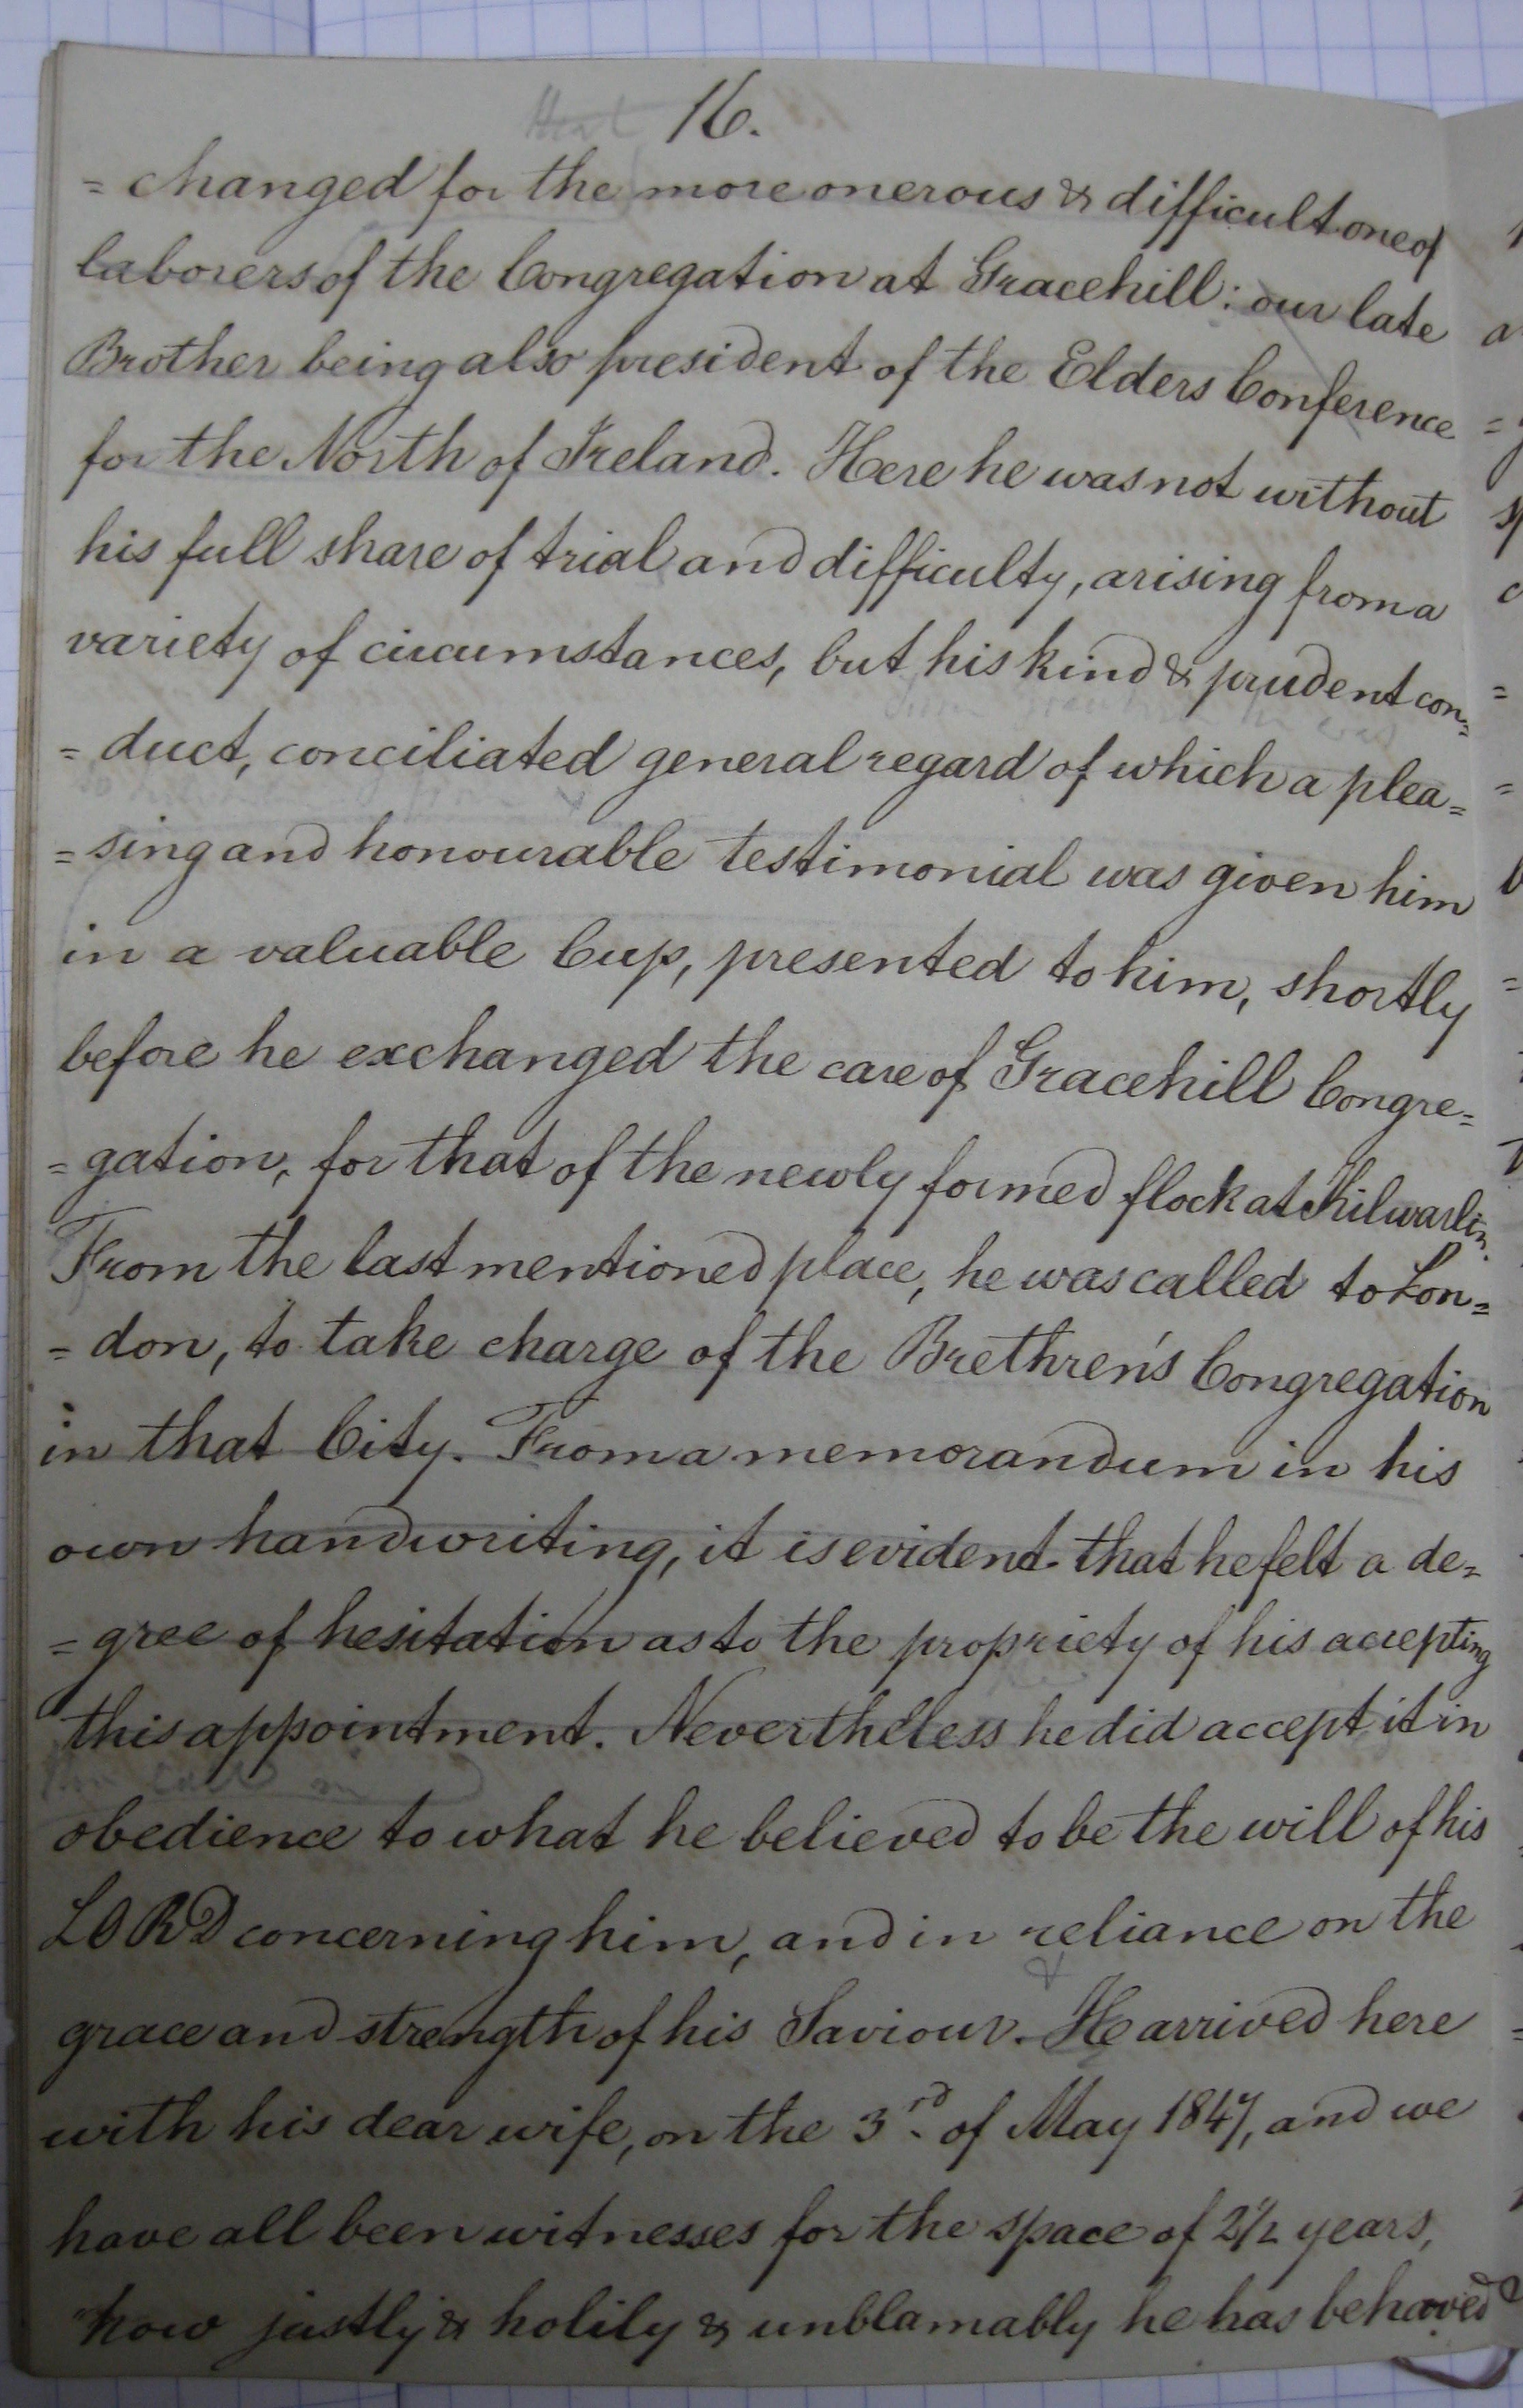 16.
= changed for the more onerous & difficult one of
laborers of the Congregation at Gracehill: our late
Brother being also president of the Elders Conference
for the North of Ireland. Here he was not without
his full share of trial and difficulty, arising from a
variety of circumstances, but his kind & prudent con=
= duct, conciliated general regard of which a plea=
= sing and honourable testimonial was given him
in a valuable Cup, presented to him, shortly
before he exchanged the care of Gracehill Congre=
= gation, for that of the newly formed flock at Kilwarlin.
From the last mentioned place, he was called to Lon=
= don, to take charge of the Brethren's Congregation
in that City. From a memorandum in his
own handwriting, it is evident that he felt a de=
= gree of hesitation as to the propriety of his accepting
this appointment. Nevertheless he did accept it in
obedience to what he believed to be the will of his
LORD concerning him, and in reliance on the
grace and strength of his Saviour. He arrived here
with his dear wife, on the 3rd. of May 1847, and we
have all been witnesses for the space of 2½ years,
"how justly & holily & unblamably he has behaved